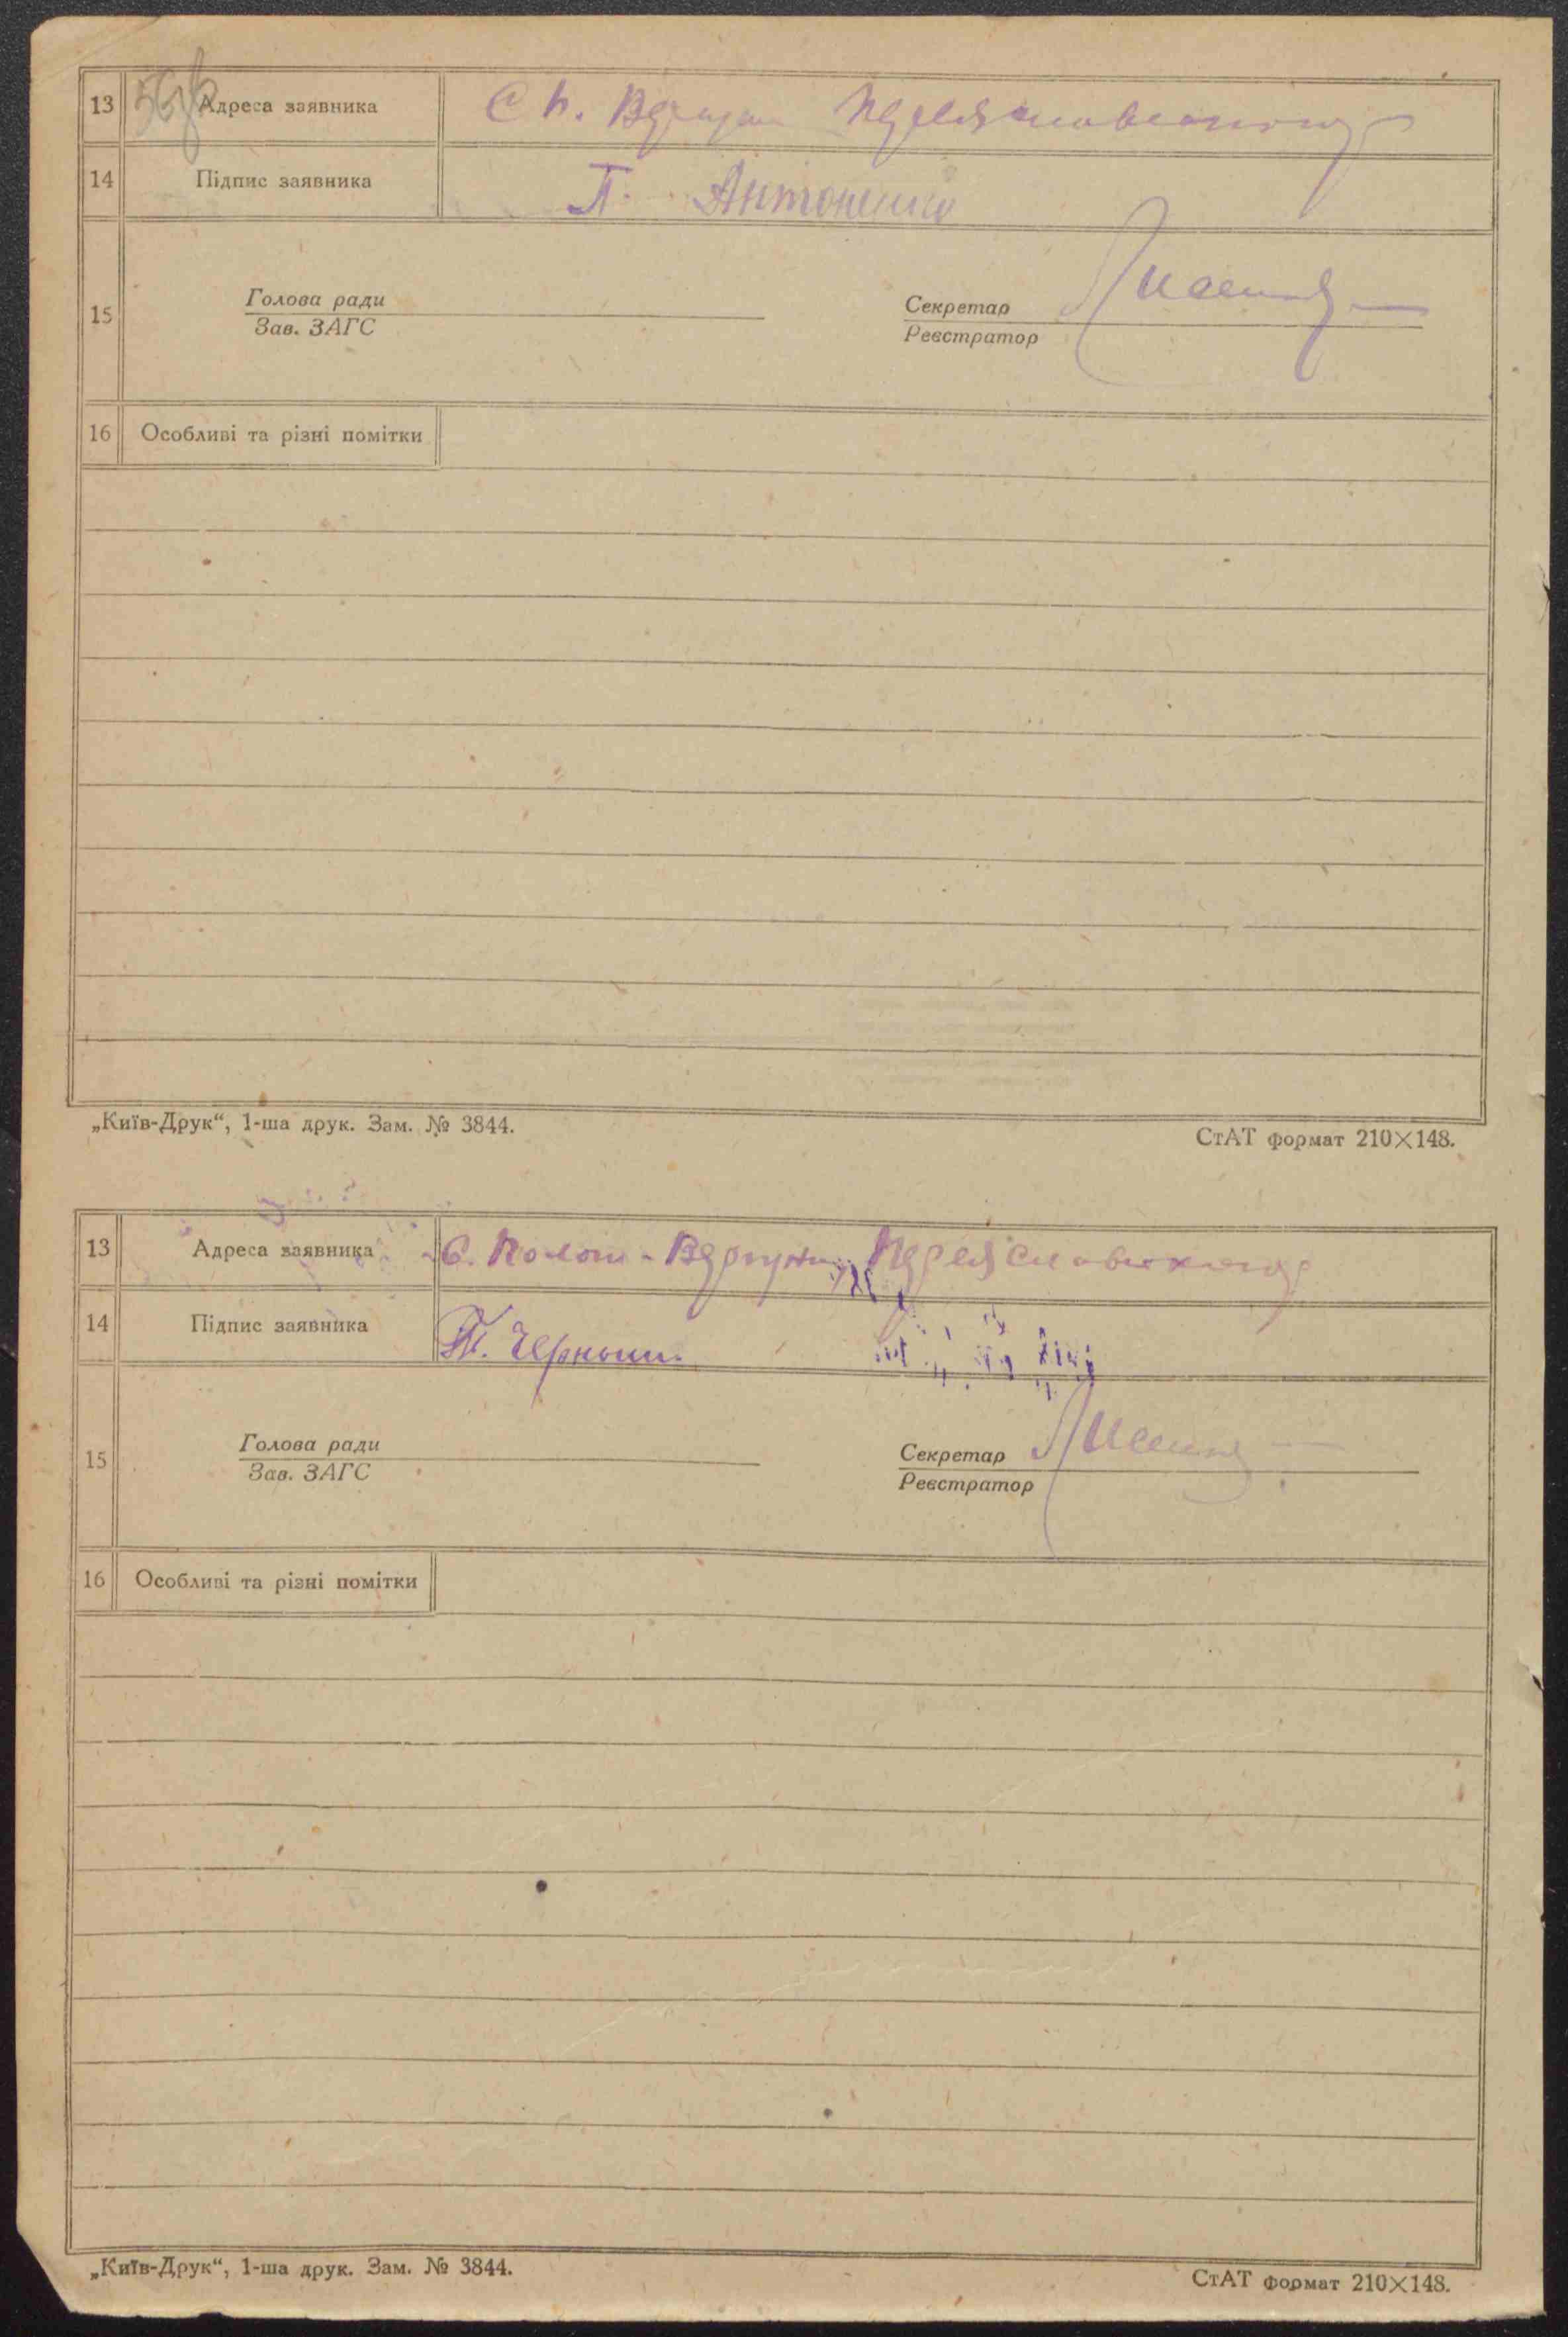 13 Адреса заявника С П.
14 Підпис заявника П. Антоненко
15 Голова ради Секретар
Зав. ЗАГС Реєстратор
16 Особливі та різні помітки
„Київ-Друк“, 1-ша друк. Зам. № 3844. СтАТ формат 210×148.
13 Адреса заявника С. Полог-Вергуни
14 Підпис заявника
15 Голова ради Секретар
Зав. ЗАГС Реєстратор
16 Особливі та різні помітки
„Київ-Друк“, 1-ша друк. Зам. № 3844. СтАТ формат 210×148.